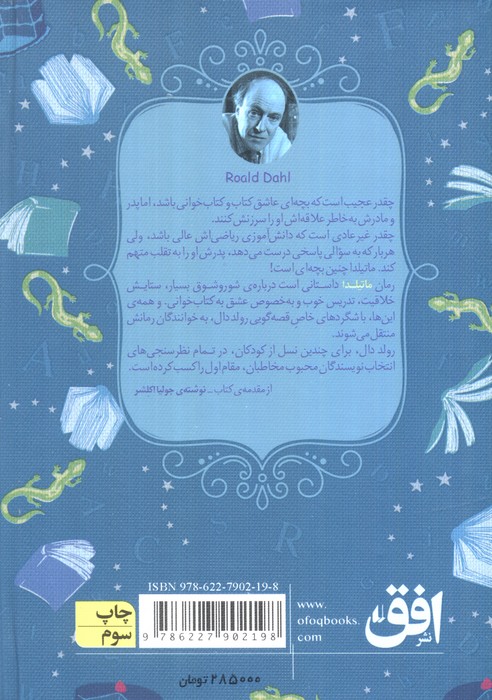 Roald Dahl
چقدر عجیب است که بچه‌ای عاشق کتاب و کتاب‌خوانی باشد، اما پدر
و مادرش به خاطر علاقه‌اش او را سرزنش کنند.
چقدر غیرعادی است که دانش‌آموزی ریاضی‌اش عالی باشد، ولی
هر بار که به سؤالی پاسخی درست می‌دهد، پدرش او را به تقلب متهم
کند. ماتیلدا چنین بچه‌ای است!
رمان ماتیلدا داستانی است درباره‌ی شور و شوق بسیار، ستایش
خلاقیت، تدریس خوب و به‌خصوص عشق به کتاب‌خوانی. و همه‌ی
این‌ها، با شگردهای خاص قصه‌گویی رولد دال، به خوانندگان رمانش
منتقل می‌شوند.
رولد دال، برای چندین نسل از کودکان، در تمام نظرسنجی‌های
انتخاب نویسندگان محبوب مخاطبان، مقام اول را کسب کرده است.
از مقدمه‌ی کتاب _ نوشته‌ی جولیا اکلشر
ISBN 978-622-7902-19-8
9 786227 902198
چاپ
سوم
www.
ofoqbooks.
com
نشر افق
۲۸۵۰۰۰ تومان